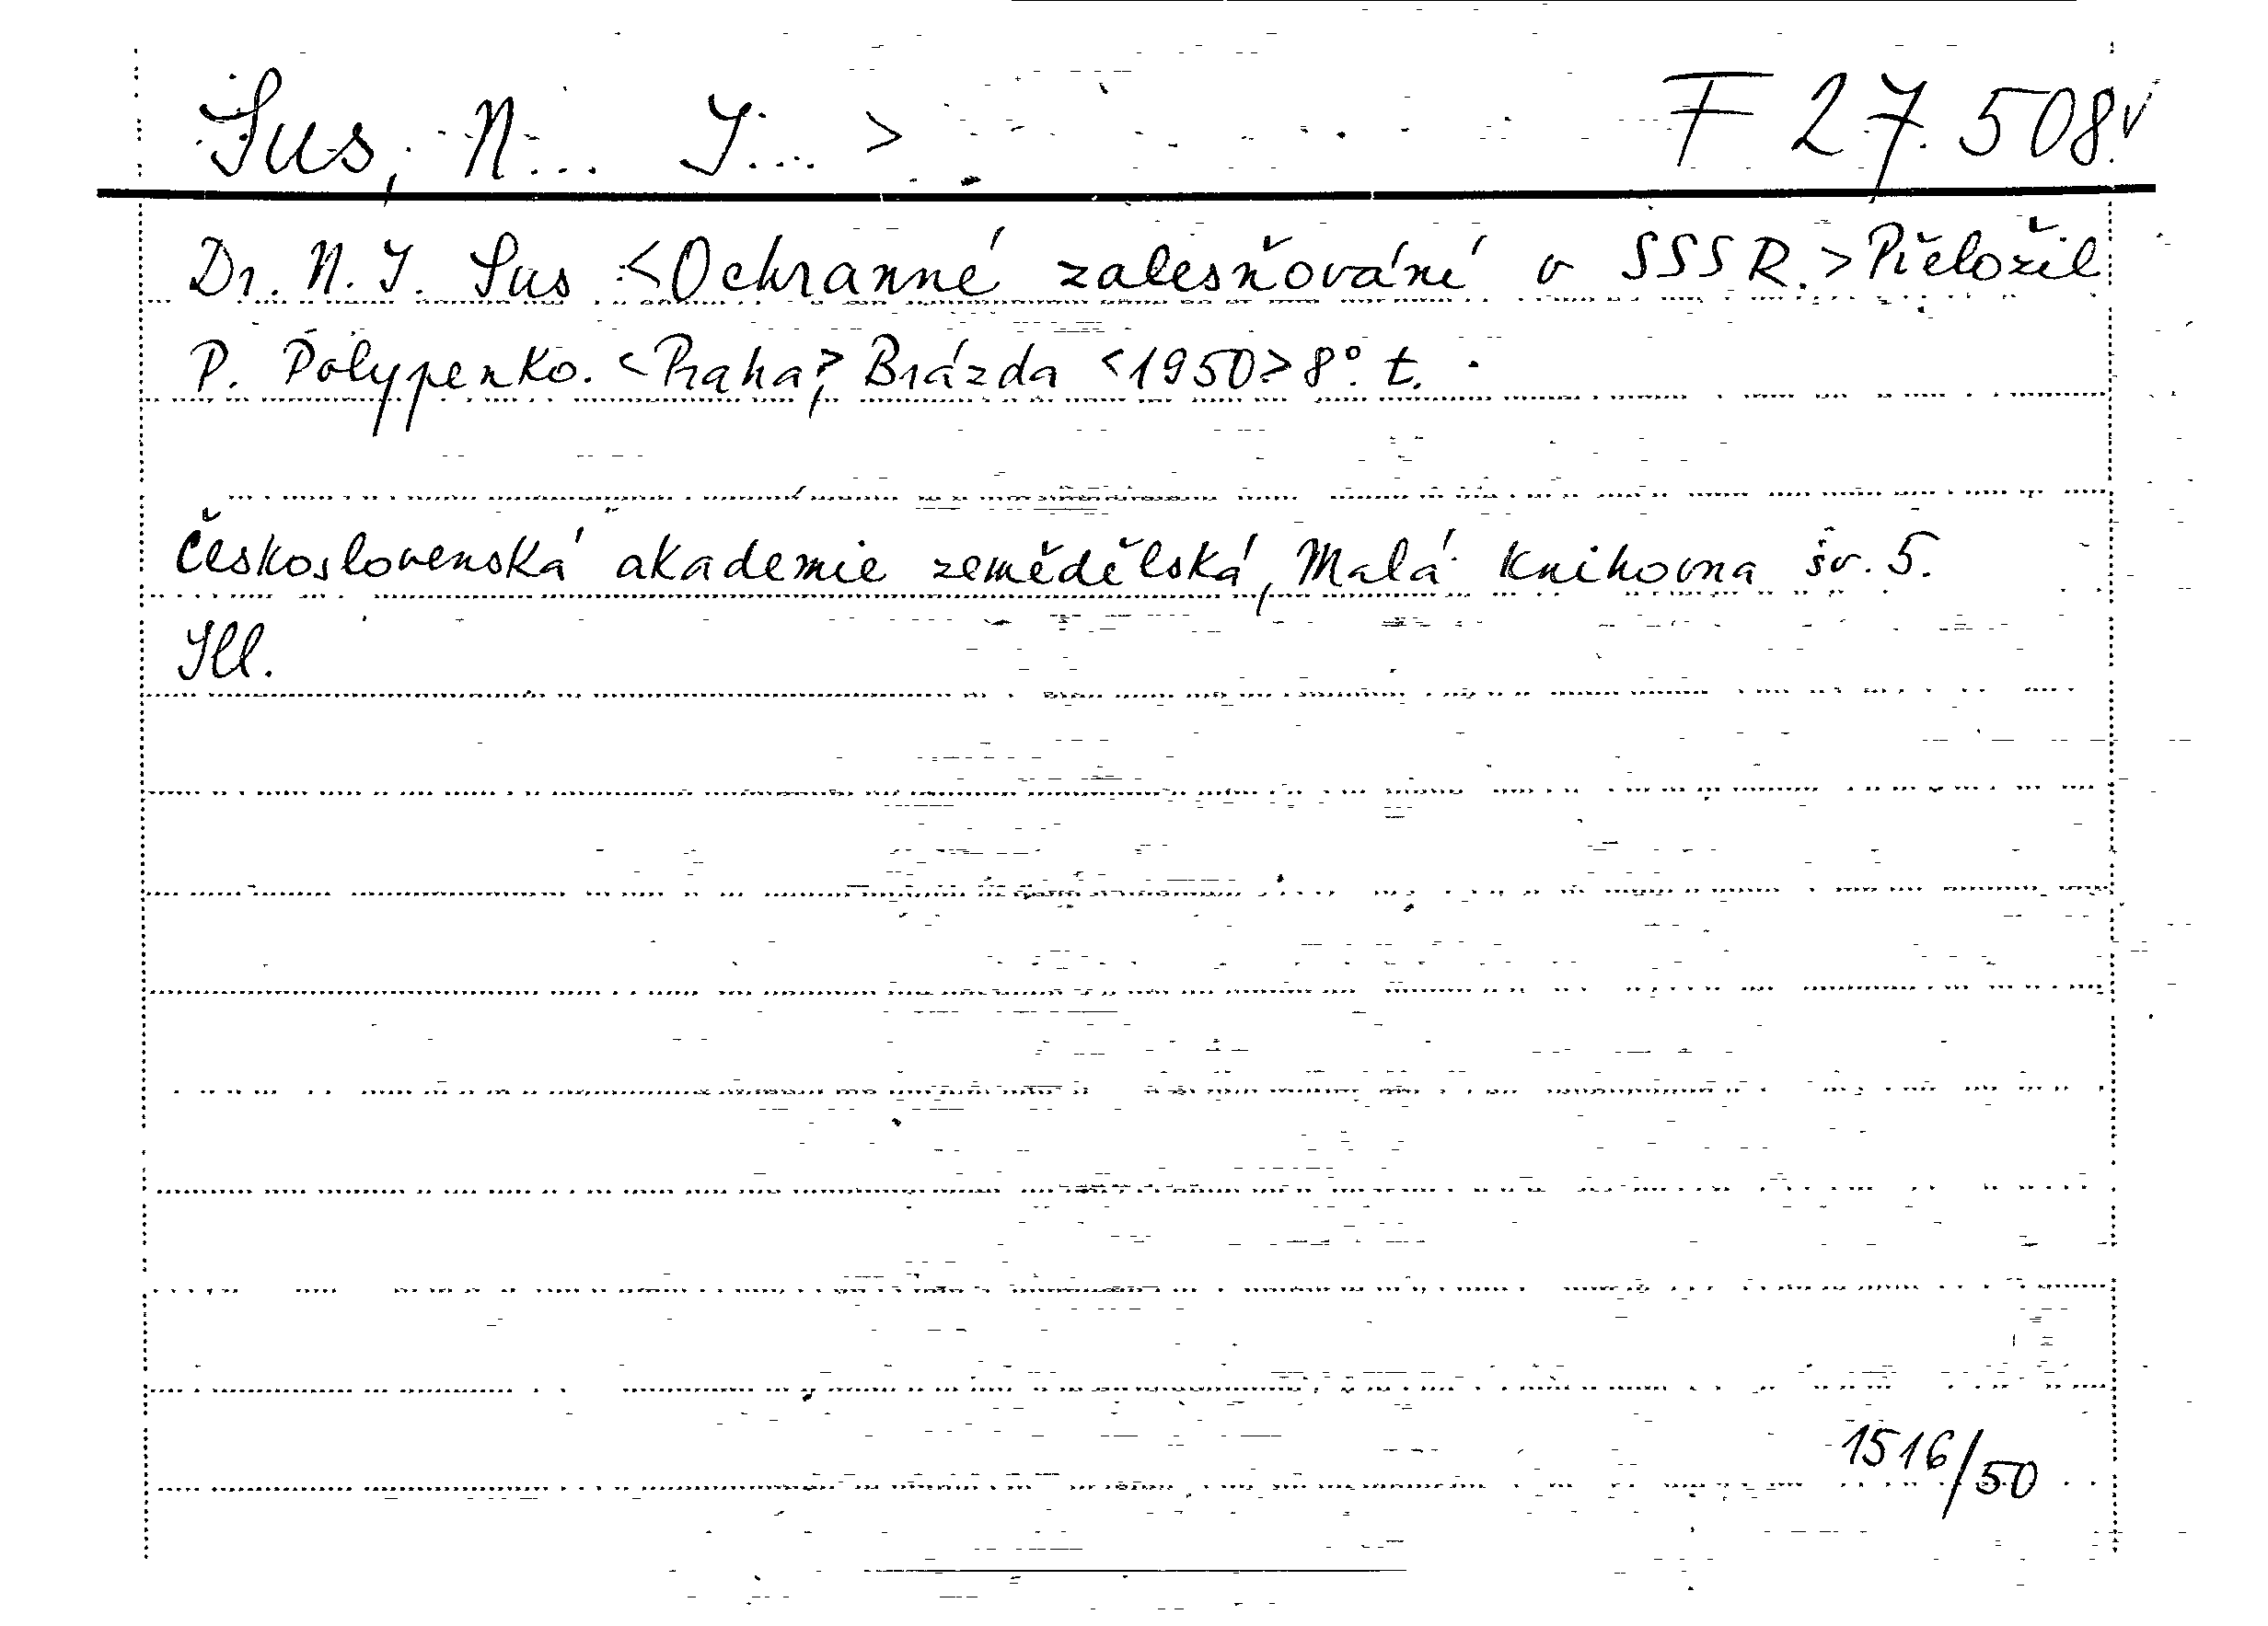 Sus, N... I... > F 27.508 v
Dr. N. I. Sus <Ochranné zalesňování v SSSR.> Přeložil
P. Polypenko. <Praha,> Brázda <1950> 8°. t.
Československá akademie zemědělská, Malá knihovna sv. 5.
Ill.
1516/50